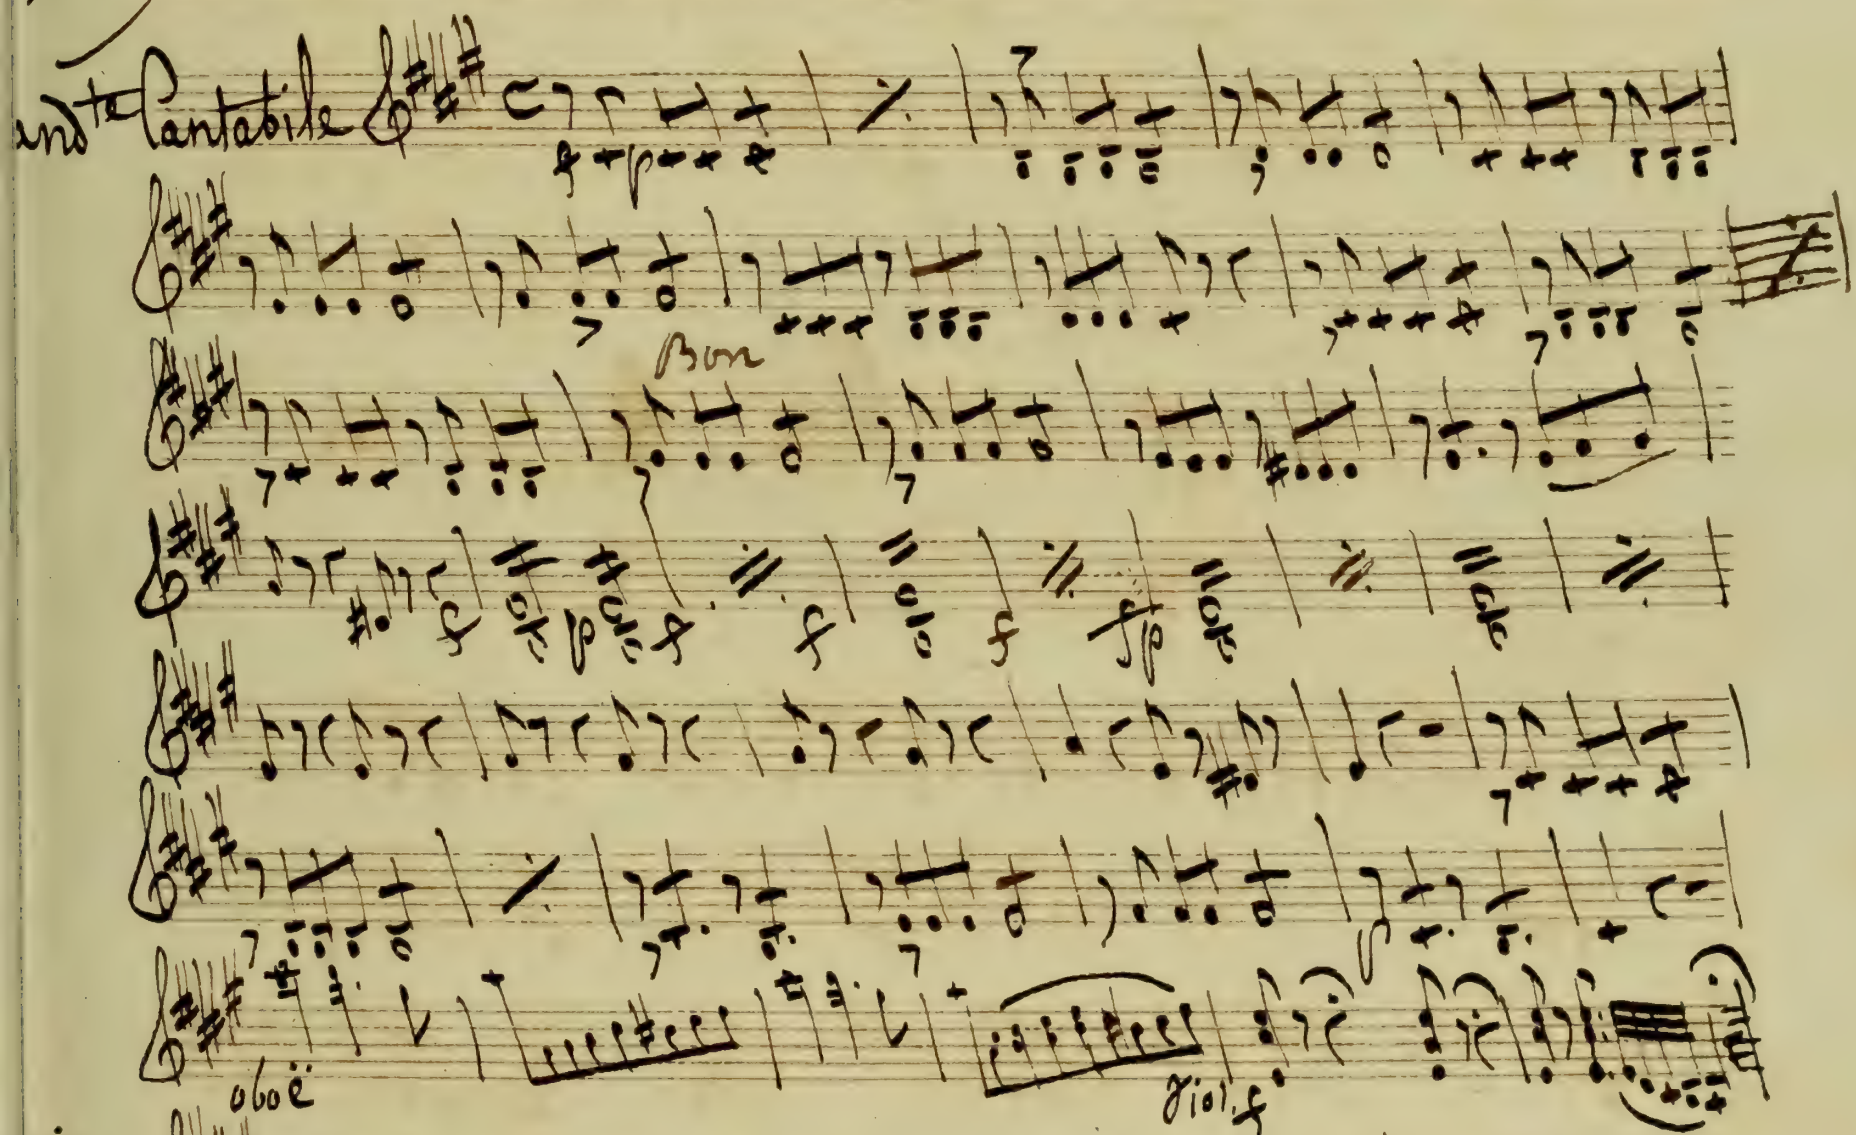 andte Cantabile
f p
Bon
f p f f f fp
p
oboë
Viol. f